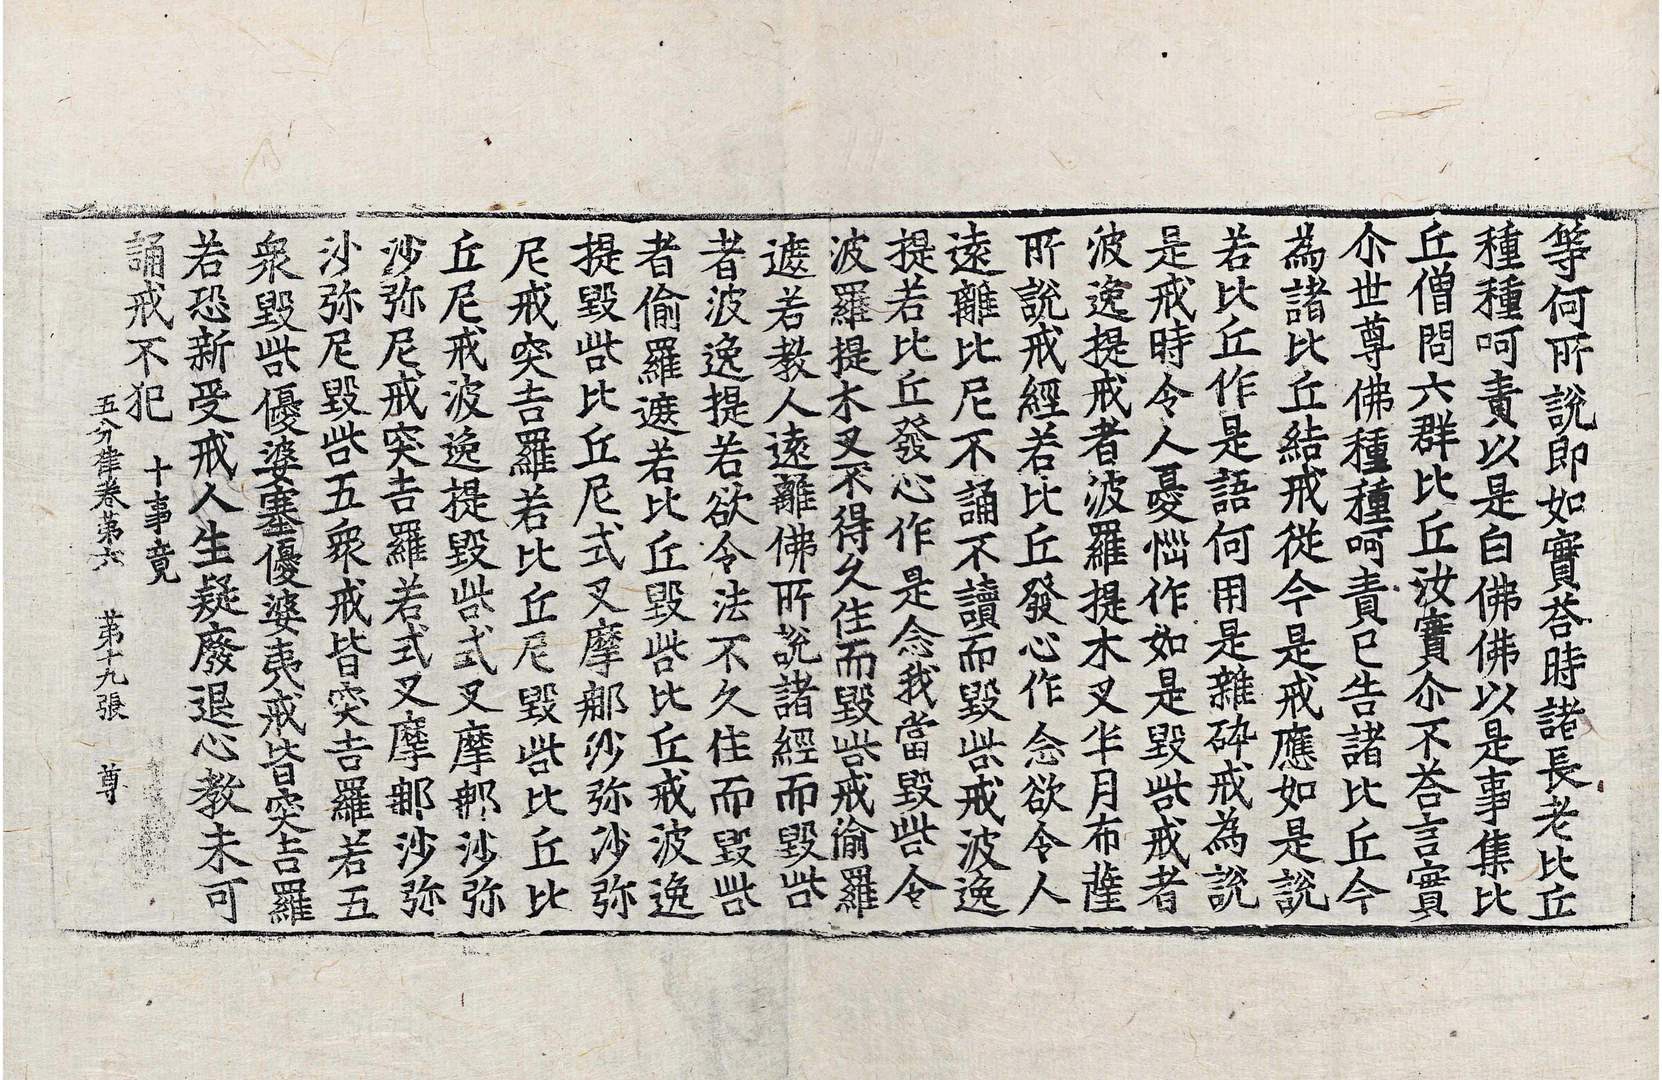 等何所説即如實荅時諸長老比丘
種種呵責以是白佛佛以是事集比
丘僧問六群比丘汝實尒不荅言實
尒世尊佛種種呵責已告諸比丘今
為諸比丘結戒從今是戒應如是説
若比丘作是語何用是雜碎戒為説
是戒時令人憂惱作如是毀呰戒者
波逸提戒者波羅提木叉半月布薩
所説戒經若比丘發心作念欲令人
遠離比尼不誦不讀而毀呰戒波逸
提若比丘發心作是念我當毀呰令
波羅提木叉不得久住而毀呰戒偷羅
遮若教人遠離佛所説諸經而毀呰
者波逸提若欲令法不久住而毀呰
者偷羅遮若比丘毀呰比丘戒波逸
提毀呰比丘尼式叉摩那沙弥沙弥
尼戒突吉羅若比丘尼毀呰比丘比
丘尼戒波逸提毀呰式叉摩那沙弥
沙弥尼戒突吉羅若式叉摩那沙弥
沙弥尼毀呰五衆戒皆突吉羅若五
衆毀呰優婆塞優婆夷戒皆突吉羅
若恐新受戒人生疑廢退心教未可
誦戒不犯 十事竟
五分律卷第六 第十九張 尊